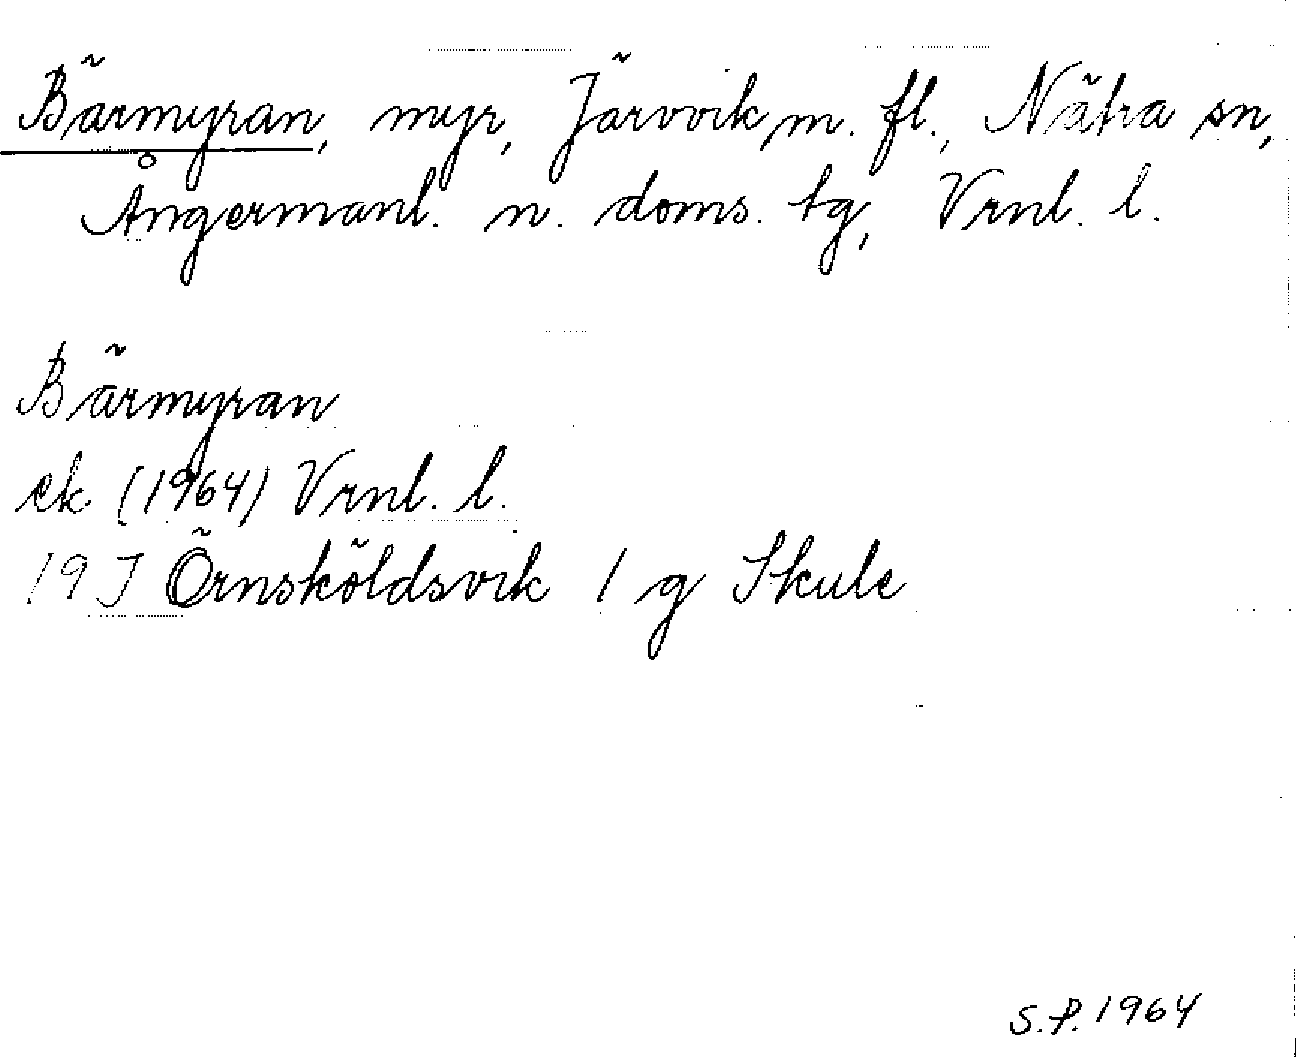 Bärmyran, myr, Järvvik m. fl., Nätra sn,
Ångermanl. n. doms. tg, Vrnl. l.
Bärmyran
ek (1964) Vrnl. l.
19 J Örnsköldsvik 1 g Skule
S.P. 1964